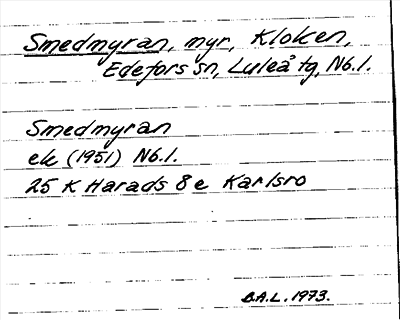 Smedmyran, myr, Kloken,
Edefors sn, Luleå tg, Nb.l.
Smedmyran
ek (1951) Nb.l.
25 K Harads 8 e Karlsro
B.A.L. 1973.